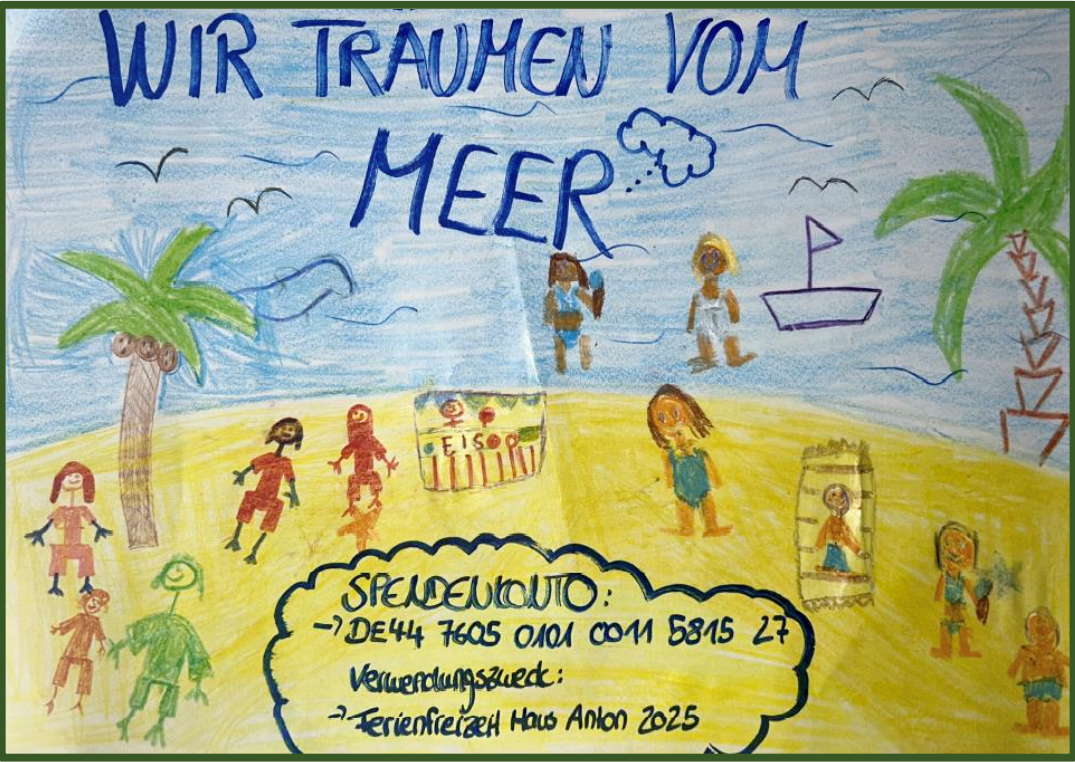 WIR TRAUMEN VOM
MEER
EISOP
SPENDENKONTO:
→ DE44 7605 0101 0011 5815 27
Verwendungszweck:
→ Ferienfreizeit Haus Anton 2025